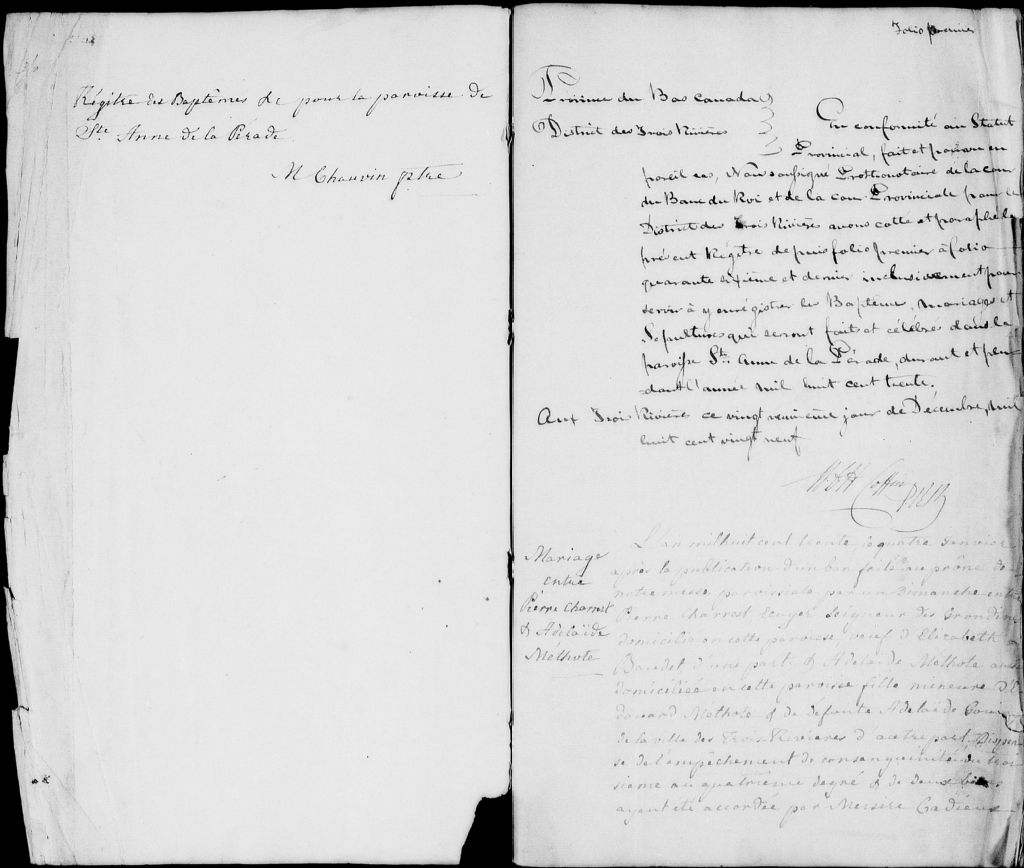 Régitre des Baptêmes &c pour la paroisse de
Ste Anne de la Pérade
M Chauvin ptre
Folio premier
Province du Bas Canada
District des Trois Rivières
En conformité au Statut
Provincial, fait et pourvu en
pareil cas, Nous soussigné Prothonotaire de la cour
du Banc du Roi et de la cour Provinciale pour le
District des Trois Rivières avons cotté et paraphé le
présent Régitre depuis folio premier à folio
quarante et dernier inclusivement pour
servir à y enrégistrer les Baptême, mariages et
Sepultures qui seront faits et célébrés dans la
paroisse Ste Anne de la Pérade, durant et pen
dant l'année mil huit cent trente.
Aux Trois Rivières ce vingt jour de Décembre, mil
huit cent vingt neuf
Coffin
Mariage
entre
Pierre Charrest
& Adelaïde
Méthote
L'an mil huit cent trente le quatre Janvier
après la publication d'un ban faite au prône de
notre messe paroissiale par un Dimanche entre
Pierre Charrest Ecuyer Seigneur des Grondines
domicilié en cette paroisse veuf d'Elizabeth
Baudet d'une part & Adelaïde Méthote aussi
domiciliée en cette paroisse fille mineure d'E
douard Méthote & de defunte Adelaïde
de la ville des Trois Rivières d'autre part, Dispen
se de l'empêchement de consanguinité du troi
sième au quatrième degré & de deux bans
ayant été accordée par Messire Cadieux